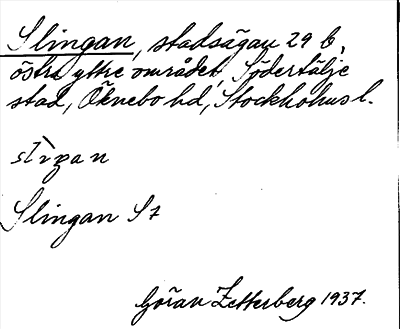 Slingan, stadsägan 29 b,
östra yttre området, Södertälje
stad, Öknebo hd, Stockholms l.
Slingan St
Göran Zetterberg 1937.